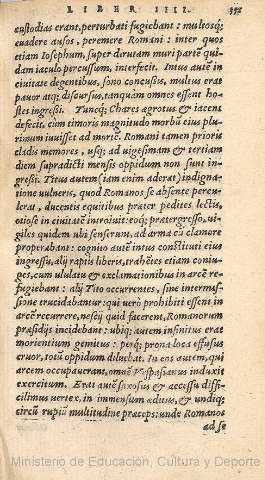 LIBER IIII.
custodias erant, perturbati fugiebant: multosq;
euadere ausos, peremere Romani: inter quos
etiam Iosephum, super dirutam muri partē qui-
dam iaculo percussum, interfecit. Intus autē in
ciuitate degentibus, sono concussis, multus erat
pauor atq; discursus, tanquàm omnes essent ho-
stes ingressi. Tuncq; Chares agrotus & iacens
defecit, cùm timoris magnitudo morbū eius plu-
rimùm iuuisset ad mortē. Romani tamen prioris
cladis memores, usq; ad uigesimam & tertiam
diem supradicti mensis oppidum non sunt in-
gressi. Titus autem (iam enim aderat) indigna-
tione uulneris, quod Romanos se absente percu-
lerat, ducentis equitibus præter pedites lectis,
otiose in ciuitatē introiuit: eoq; prætergresso, ui-
giles quidem ubi senserunt, ad arma cū clamore
properabant: cognito autē intus constituti eius
ingressu, alij raptis liberis, trahētes etiam coniu-
ges, cum ululatu & exclamationibus in arcē re-
fugiebant: alij Tito occurrentes, sine intermis-
sione trucidabantur: qui uero prohibiti essent in
arcē recurrere, nescij quid facerent, Romanorum
præsidijs incidebant: ubiq; autem infinitus erat
morientium gemitus: perq; prona loca effusus
cruor, totū oppidum diluebat. In eos autem, qui
arcem occupauerant, omnē Vespasianus induxit
exercitum. Erat autē saxosus & accessu diffi-
cilimus uertex, in immensum æditus, & undiq;
circū rupiū multitudine præceps: unde Romanos
ad se
Ministerio de Educación, Cultura y Deporte